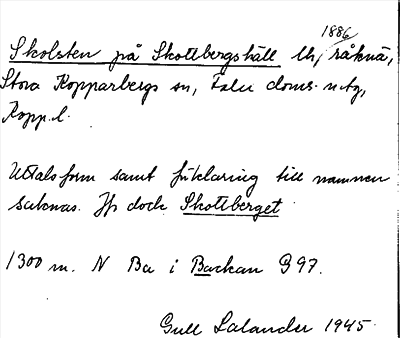 1886
Skolsten på Skottbergshäll lh, råknä,
Stora Kopparbergs sn, Falu doms. n. tg,
Kopp. l.
Uttalsform samt förklaring till namnen
saknas. Jfr dock Skottberget
1300 m. N Ba i Backan B97.
Gull Salander 1945.